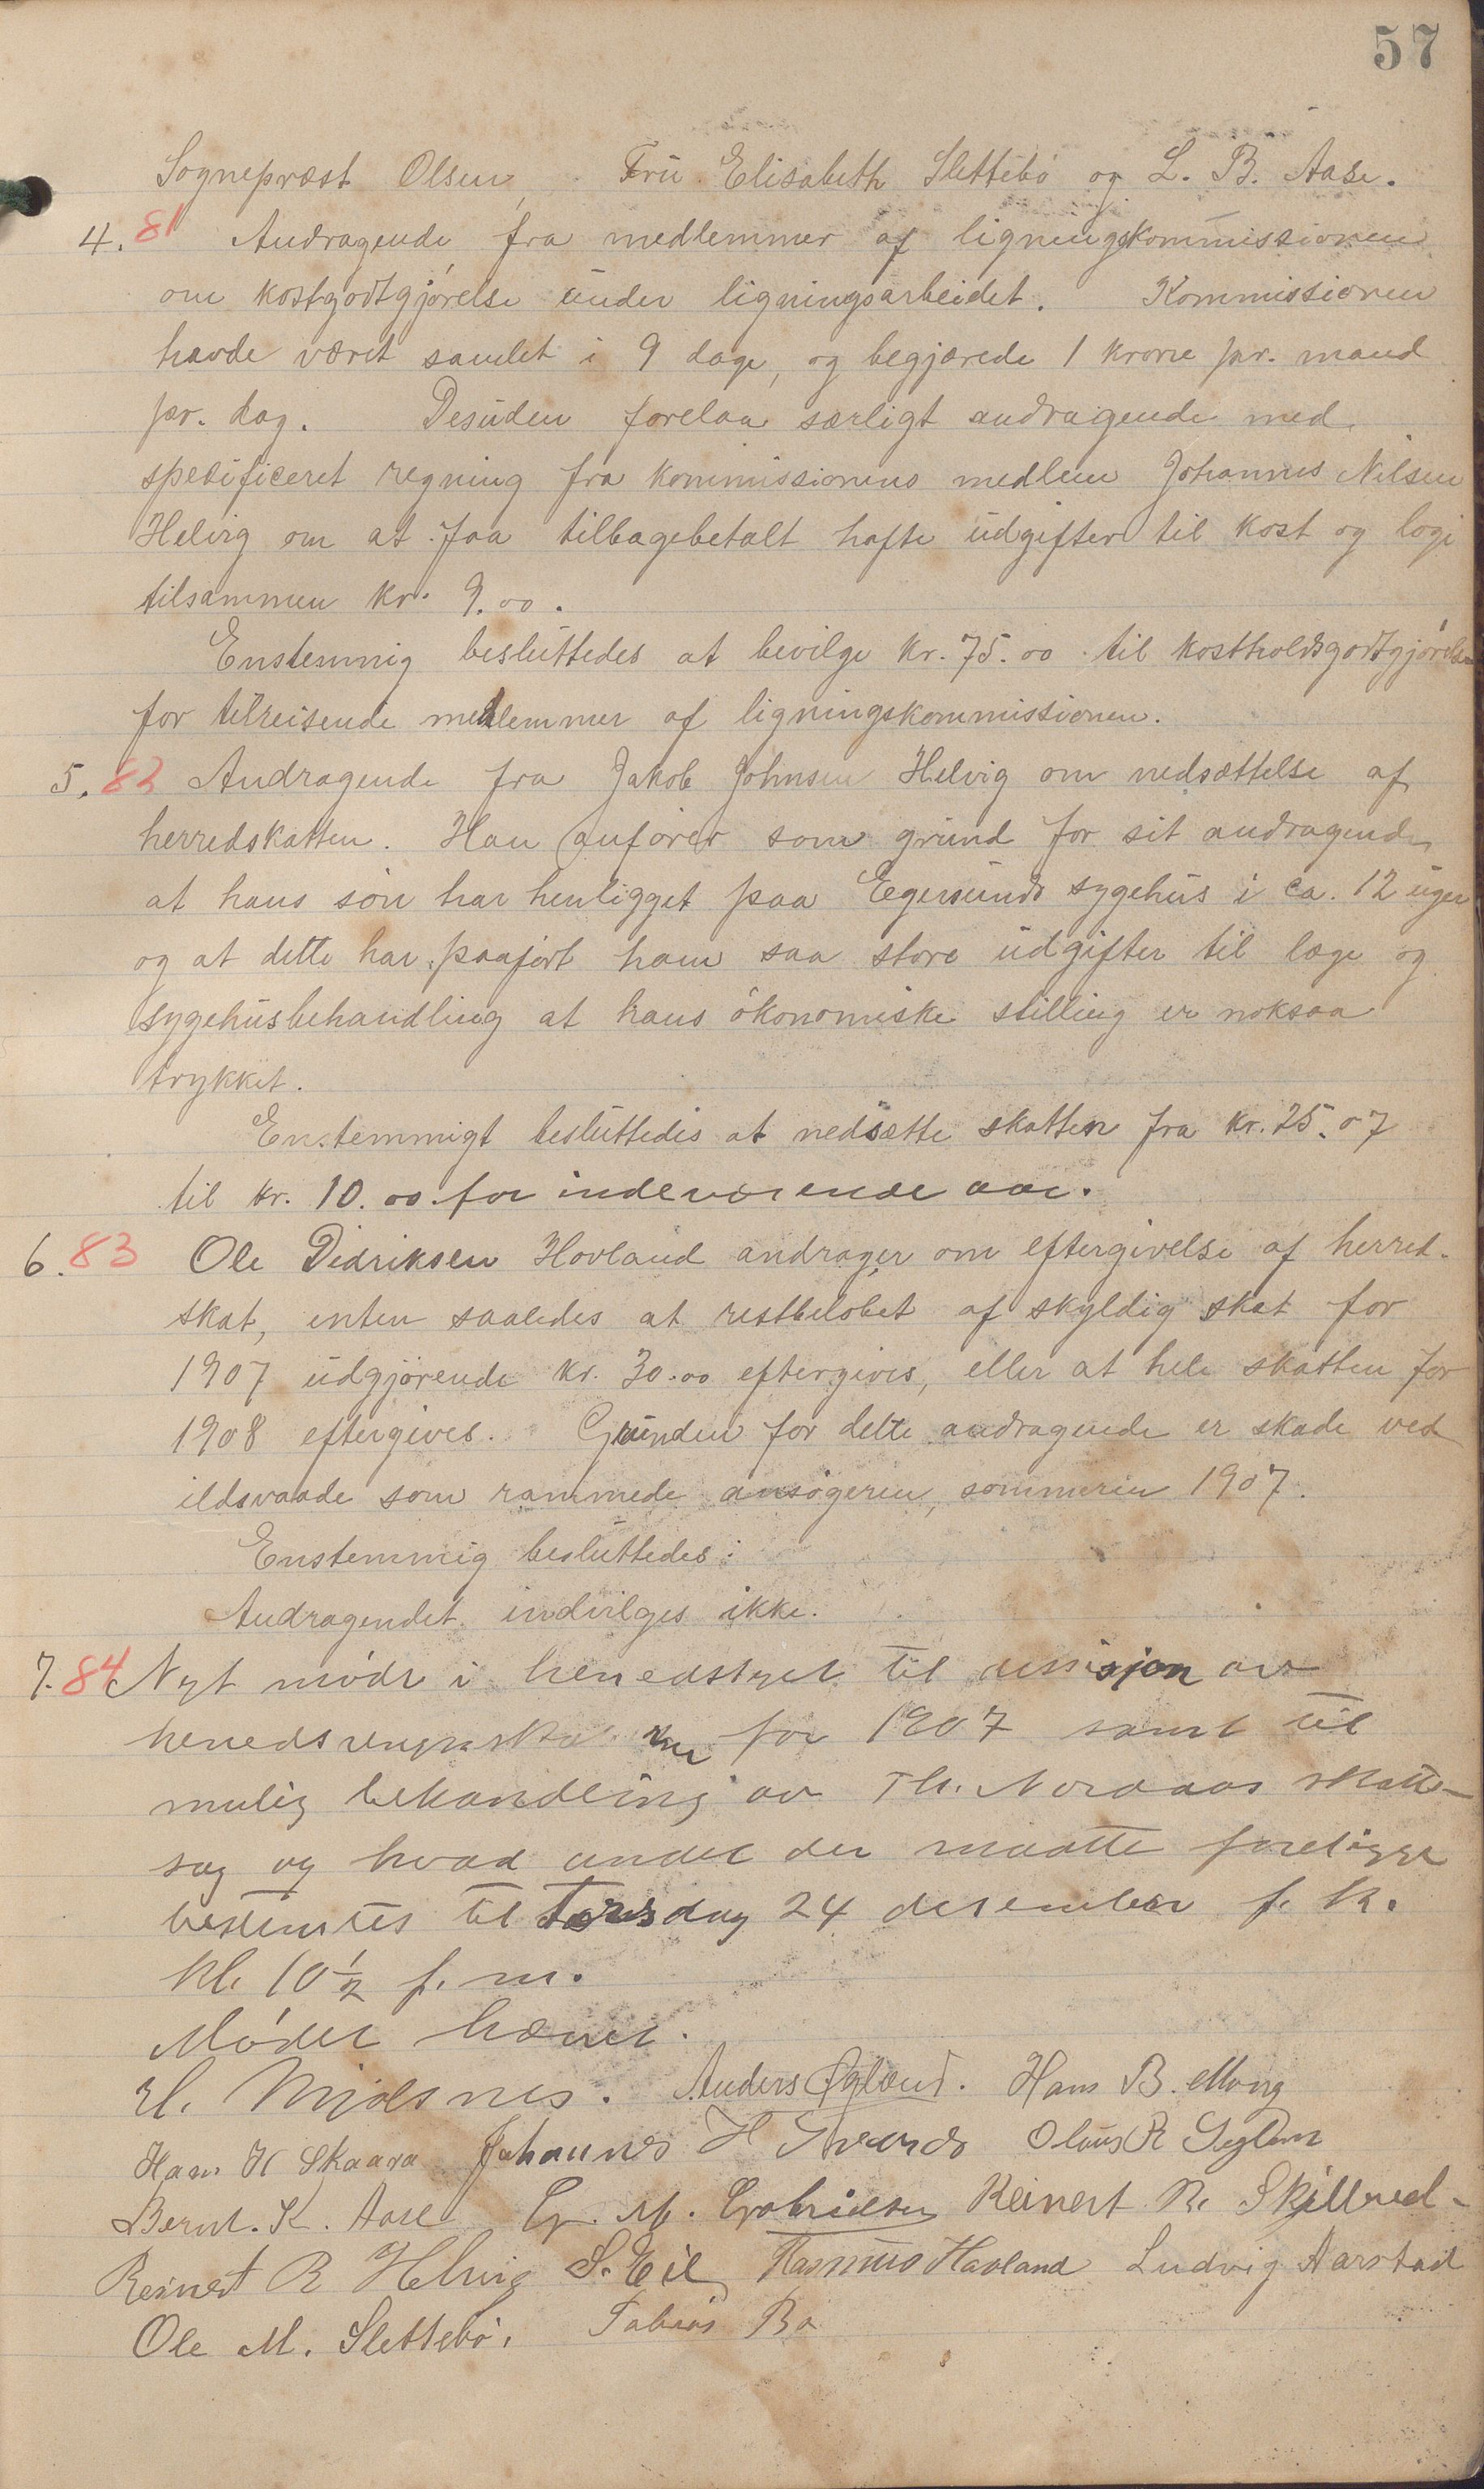 57
Sognepræst Olsen, Fru Elisabeth Slettebö og L. B. Aase.
4. 81 Andragende fra medlemmer af ligningskommissionen
om kostgodtgjörelse under ligningsarbeidet. Kommissionen
havde været samlet i 9 dage, og begjærede 1 krone pr. mand
pr. dag. Desuden forelaa særligt andragende med
specificeret regning fra kommissionens medlem Johannes Nilsen
Helvig om at faa tilbagebetalt hafte udgifter til kost og logi
tilsammen kr. 9.00.
Enstemmig besluttedes at bevilge kr. 75.00 til kostholdsgodtgjörelse
for tilreisende medlemmer af ligningskommissionen.
5. 82 Andragende fra Jakob Johnsen Helvig om nedsættelse af
herredskatten. Han anförer som grund for sit andragende
at hans sön har henligget paa Egersunds sygehus i ca. 12 uger
og at dette har paafört ham saa store udgifter til læge og
sygehusbehandling at hans ökonomiske stilling er noksaa
trykket.
Enstemmigt besluttedes at nedsætte skatten fra kr. 25.07
til kr. 10.00 for indeværende aar.
6. 83 Ole Didriksen Hovland andrager om eftergivelse af herred-
skat, enten saaledes at restbelöbet af skyldig skat for
1907 udgjörende kr. 30.00 eftergives, eller at hele skatten for
1908 eftergives. Grunden for dette andragende er skade ved
ildsvaade som rammede ansögeren, sommeren 1907.
Enstemmig besluttedes:
Andragendet indvilges ikke.
7. 84 Nyt möde i herredstyret til desisjon av
heredsregnska for 1907 samt til
mulig behandling av Th. Nordaas skatte-
sag og hvad andet der maatte foreligge
bestemtes til Torsdag 24 desember f. k.
kl. 10 1/2 f. m.
Mödet hævet.
M. Mjølsnes. Anders Øgland. Hans B. Mong
Hans K Skaara Johannes H Tveraas Olaus R Seglem
Bernt. K. Aase G. M. Gabrielsen Reinert R. Skillred-
Reinert R Helvig S. Eil Rasmus Havland Ludvig Aarstad
Ole M. Slettebö. Tobias Bö